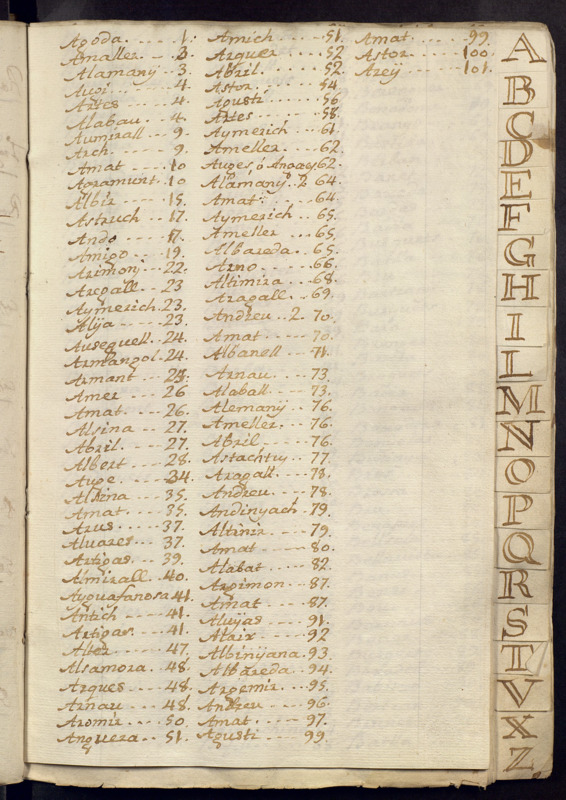 Agoda. 1.
Ameller. 3.
Alamany 3.
Artes 4.
Alabau 4.
Aumirall 9.
Arch. 9.
Amat 10
Agramunt. 10
Albir 15.
Astruch 17.
Ando 17.
Amigo 19.
Arimony 22.
Aregall 23
Aymerich. 23.
Alija 23.
Ausequell. 24.
Armangol. 24.
Armant 24.
Amer 26
Amat. 26.
Alsina 27.
Abril. 27.
Albert 28.
Auge 34.
Alsina 35.
Amat 35.
Arus 37.
Aluares 37.
Artigas 39.
Almirall 40.
Ayguafanosa 41.
Antich 41.
Artigas. 41.
Alter 47.
Alsamora. 48.
Arques 48.
Arnau 48.
Aromir 50.
Anguera 51.
Amich 51.
Arquer 52
Abril. 52.
Astor 54
Agusti 56
Artes 58.
Aymerich 61.
Ameller 62.
Auges ó 62.
Alamany. 2 64.
Amat 64.
Aymerich 65.
Ameller 65.
Albareda. 65.
Arno 66.
Altimira 68.
Aragall 69.
Andreu 2. 70.
Amat 70.
Albanell 71.
Arnau 73.
Alaball 73.
Alemany 76.
Ameller 76.
Abril 76.
Astachtuy 77.
Aragall 78.
Andreu 78.
Andinyach. 79.
Altinir 79.
Amat 80.
Alabat 82.
Argimon. 87.
Amat 87.
Aluyas 91.
Alair 92
Albinyana. 93.
Albareda 94.
Argemir 95.
Andreu 96.
Amat 97.
Agusti 99
Amat 99.
Astor 100.
Areÿ 101.
A
B
C
D
E
F
G
H
I
L
M
N
O
P
Q
R
S
T
V
X
Z